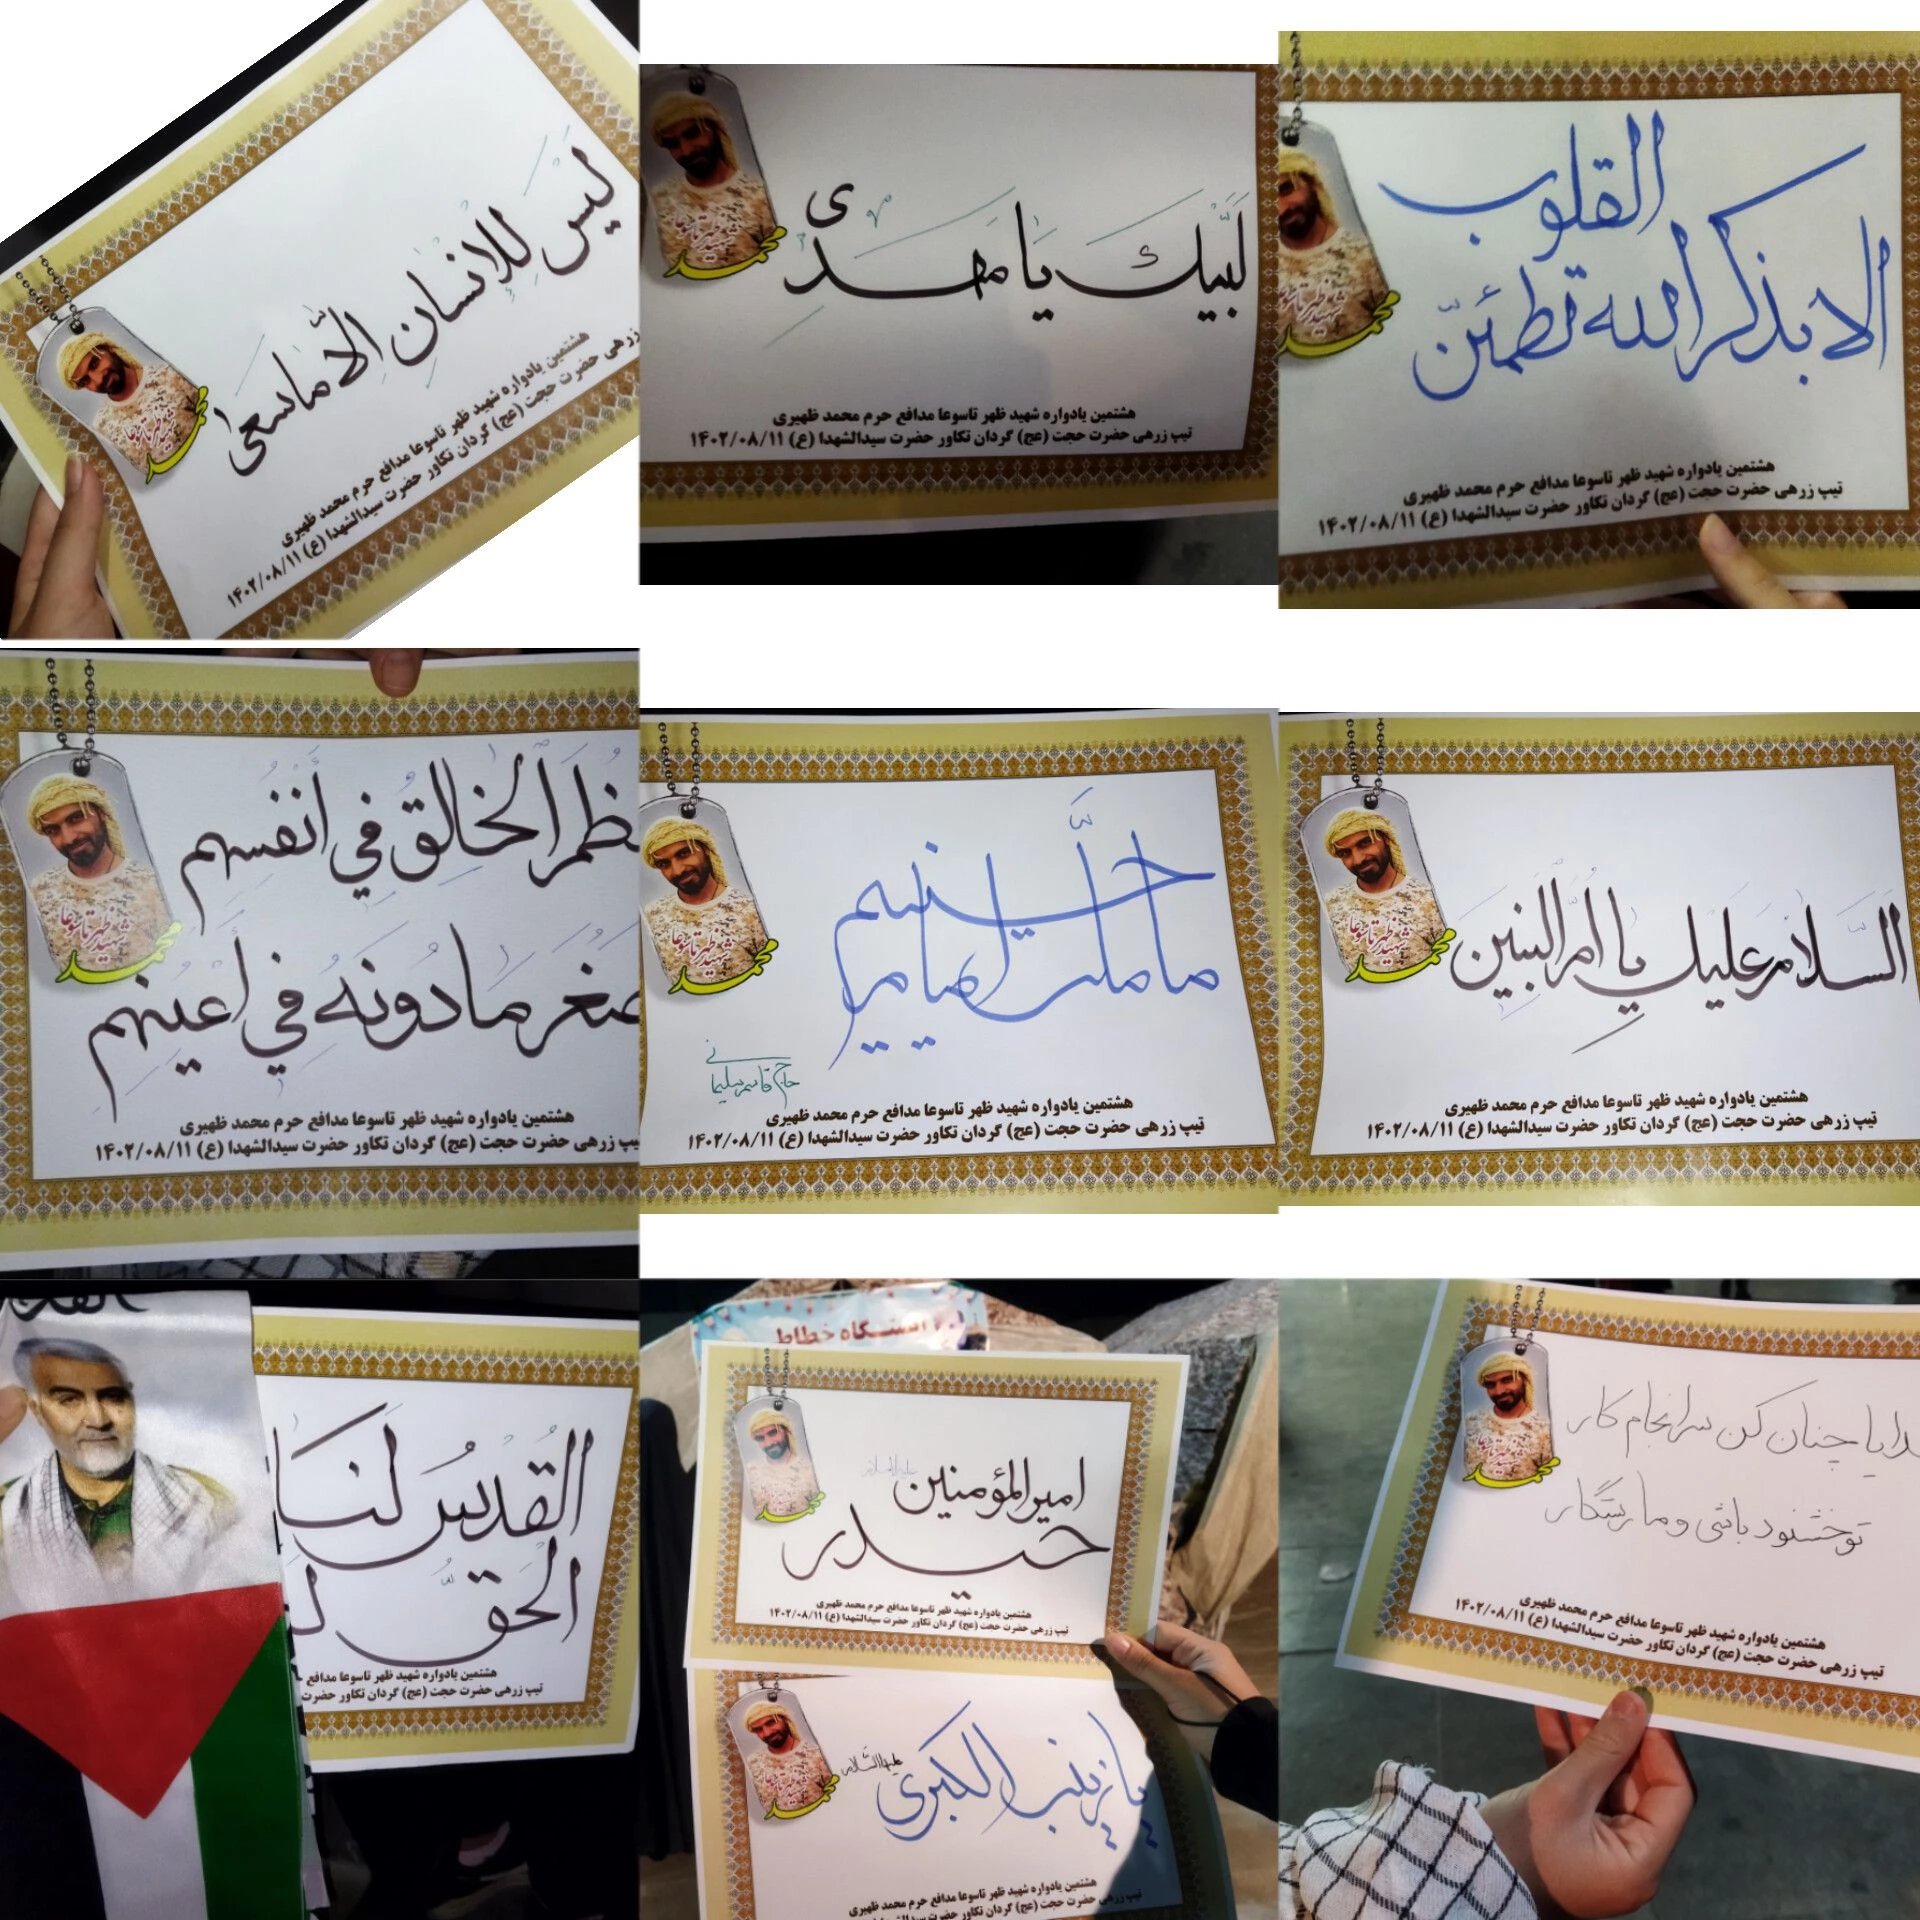 لَیْسَ لِلاِنسانِ اِلّا ماسَعیٰ
شهید ظهر تاسوعا
محمد
هشتمین یادواره شهید ظهر تاسوعا مدافع حرم محمد ظهیری
زرهی حضرت حجت (عج) گردان تکاور حضرت سیدالشهدا (ع) ۱۴۰۲/۰۸/۱۱
لَبَّیک یا مَهدی
شهید ظهر تاسوعا
محمد
هشتمین یادواره شهید ظهر تاسوعا مدافع حرم محمد ظهیری
تیپ زرهی حضرت حجت (عج) گردان تکاور حضرت سیدالشهدا (ع) ۱۴۰۲/۰۸/۱۱
الا بذکر الله تطمئنّ
القلوب
شهید ظهر تاسوعا
محمد
هشتمین یادواره شهید ظهر تاسوعا مدافع حرم محمد ظهیری
تیپ زرهی حضرت حجت (عج) گردان تکاور حضرت سیدالشهدا (ع) ۱۴۰۲/۰۸/۱۱
ظُمَ الخالِقُ في أَنفُسِهِم
صَغُرَ مادونَهُ في أَعیُنِهِم
شهید ظهر تاسوعا
محمد
هشتمین یادواره شهید ظهر تاسوعا مدافع حرم محمد ظهیری
تیپ زرهی حضرت حجت (عج) گردان تکاور حضرت سیدالشهدا (ع) ۱۴۰۲/۰۸/۱۱
ما ملت امام حسینیم
حاج قاسم سلیمانی
شهید ظهر تاسوعا
محمد
هشتمین یادواره شهید ظهر تاسوعا مدافع حرم محمد ظهیری
تیپ زرهی حضرت حجت (عج) گردان تکاور حضرت سیدالشهدا (ع) ۱۴۰۲/۰۸/۱۱
السَّلامُ عَلَیكِ یا اُمَّ البَنینَ
شهید ظهر تاسوعا
محمد
هشتمین یادواره شهید ظهر تاسوعا مدافع حرم محمد ظهیری
تیپ زرهی حضرت حجت (عج) گردان تکاور حضرت سیدالشهدا (ع) ۱۴۰۲/۰۸/۱۱
القُدسُ لَنا
الحَقُّ
هشتمین یادواره شهید ظهر تاسوعا مدافع
تیپ زرهی حضرت حجت (عج) گردان تکاور حضرت
خطاط
امیرالمؤمنین علیه السلام
حیدر
شهید ظهر تاسوعا
محمد
هشتمین یادواره شهید ظهر تاسوعا مدافع حرم محمد ظهیری
تیپ زرهی حضرت حجت (عج) گردان تکاور حضرت سیدالشهدا (ع) ۱۴۰۲/۰۸/۱۱
یا زینب الکبری علیها السلام
شهید ظهر تاسوعا
محمد
هشتمین یادواره شهید ظهر تاسوعا مدافع حرم محمد ظهیری
دایا چنان کن سرانجام کار
تو خشنود باشی و ما رستگار
شهید ظهر تاسوعا
محمد
هشتمین یادواره شهید ظهر تاسوعا مدافع حرم محمد ظهیری
تیپ زرهی حضرت حجت (عج) گردان تکاور حضرت سیدالشهدا (ع) ۱۴۰۲/۰۸/۱۱